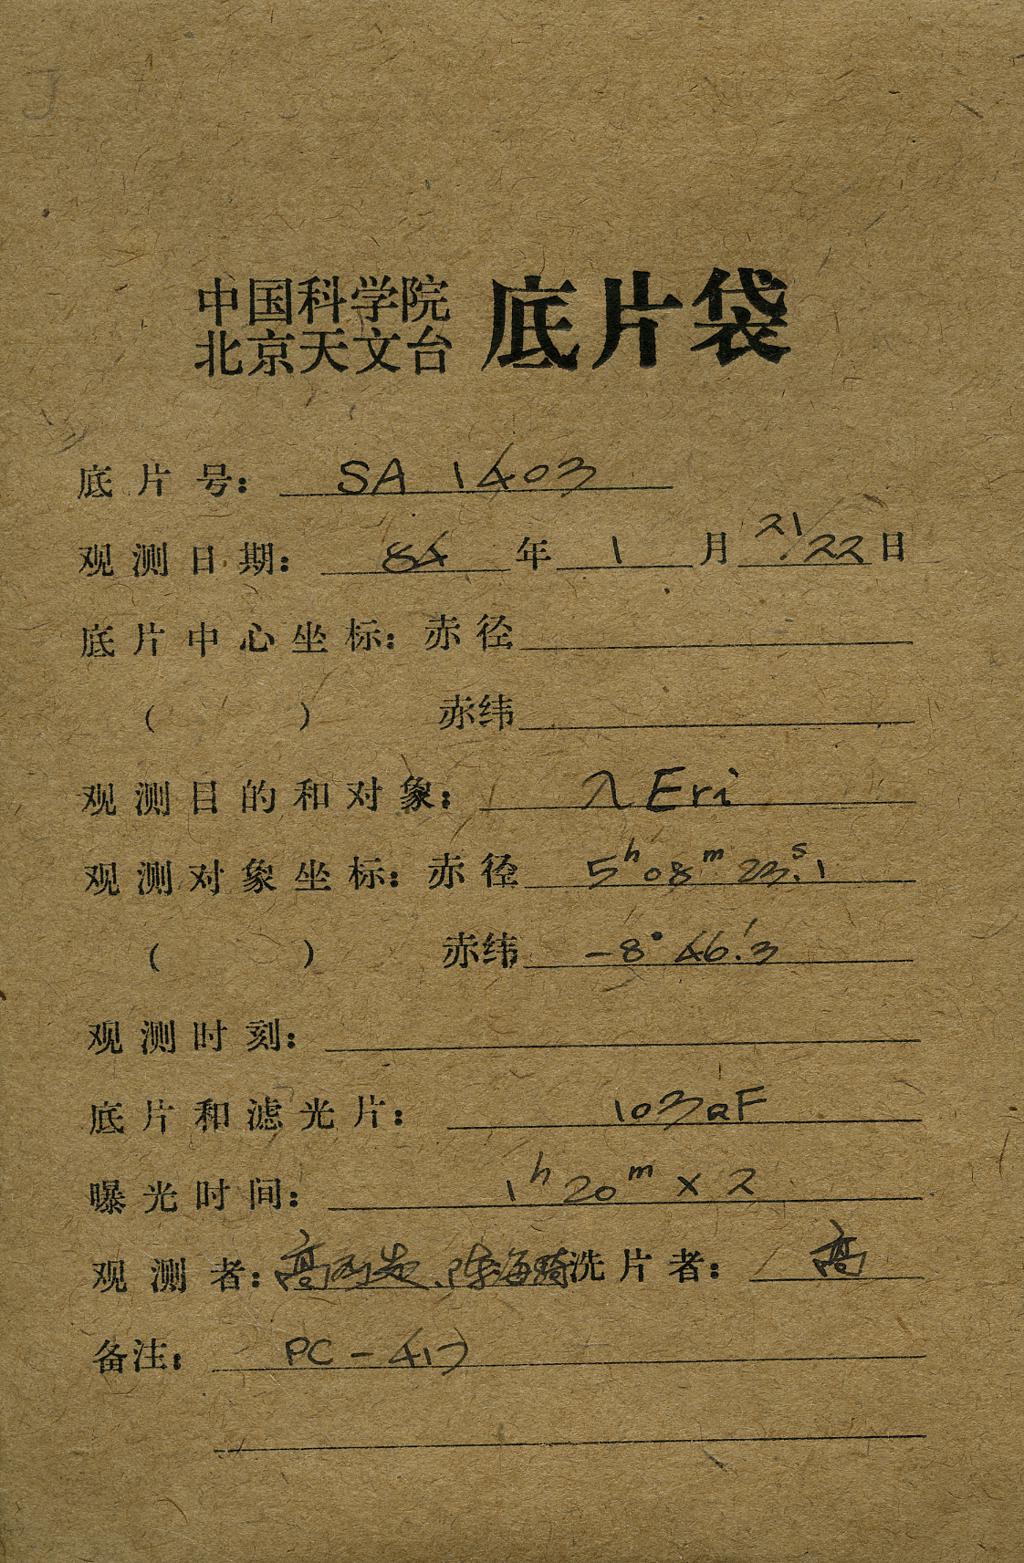 中国科学院 底片袋
北京天文台
底片号: SA 1403
观测日期: 84 年 1 月 21/22 日
底片中心坐标: 赤径
( ) 赤纬
观测目的和对象: λ Eri
观测对象坐标: 赤径 5h 08m 23s.1
( ) 赤纬 -8° 46'.3
观测时刻:
底片和滤光片: 103aF
曝光时间: 1h 20m × 2
观测者: 高 、陈海 洗片者: 高
备注: PC-417